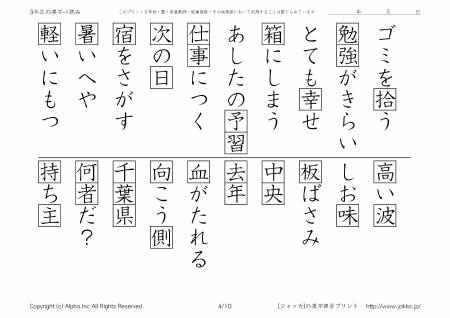 3年生の漢字-1読み
このプリントを学校・塾・家庭教師・医療施設・その他施設において利用することは禁じられています
年　月　日
ゴミを拾う
勉強がきらい
とても幸せ
箱にしまう
あしたの予習
仕事につく
次の日
宿をさがす
暑いへや
軽いにもつ
高い波
しお味
板ばさみ
中央
去年
血がたれる
向こう側
千葉県
何者だ？
持ち主
Copyright (c) Alpha.Inc All Rights Reserved.
4/10
[ジャッカ]の漢字練習プリント　http://www.jakka.jp/